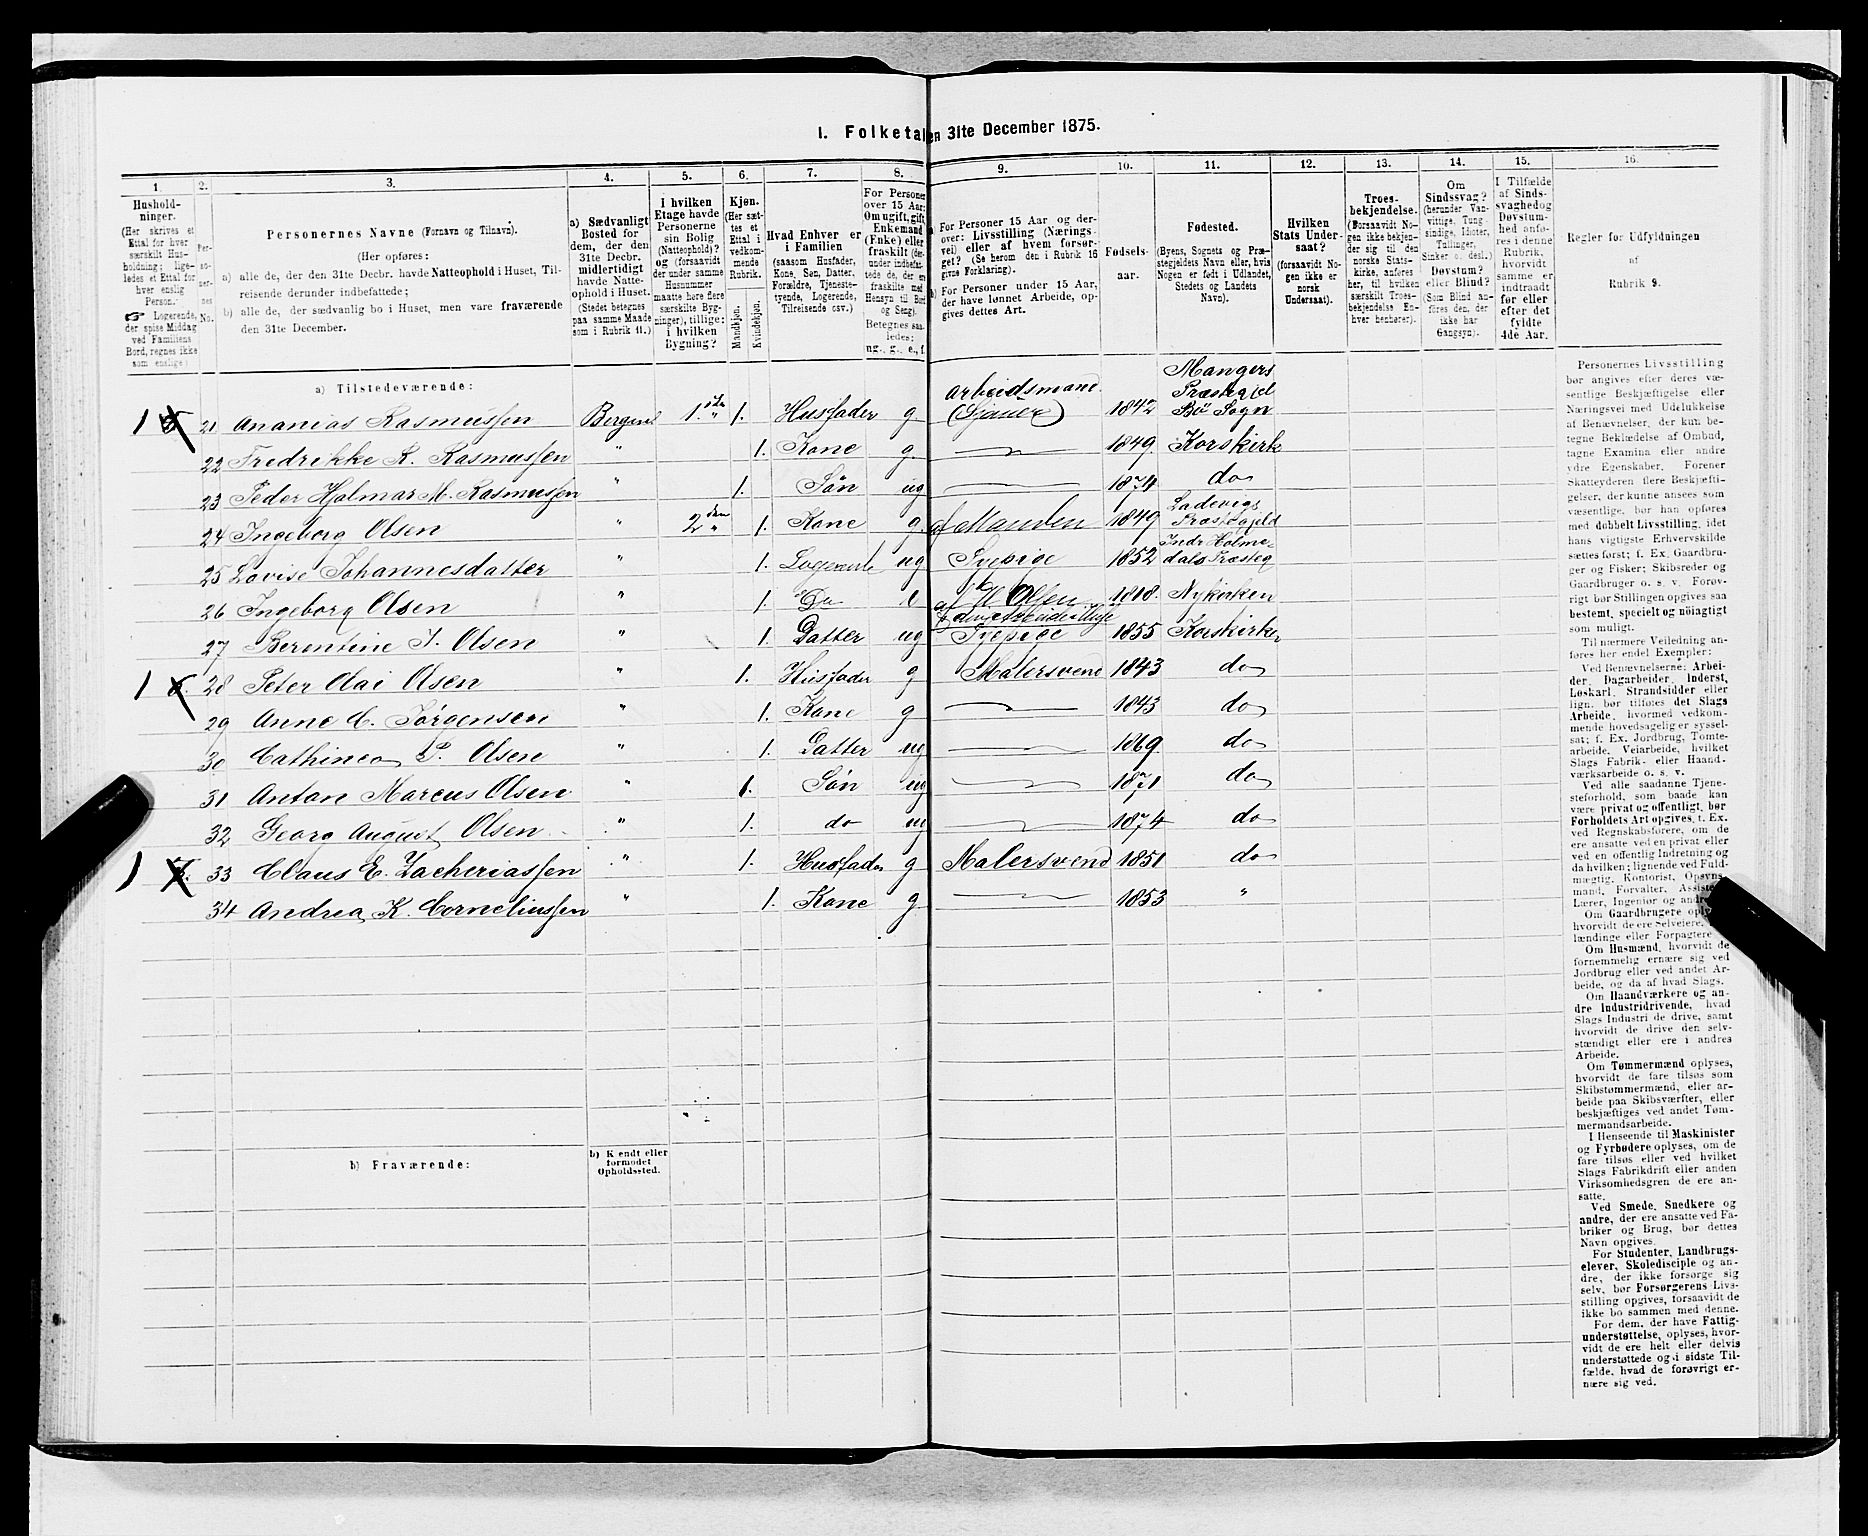 I. Folketal den 31te December 1875.
1. 2. 3. 4. 5. 6. 7. 8. 9. 10. 11. 12. 13. 14. 15. 16.
Hushold-
ninger.
(Her skrives et
Ettal for hver
særskilt Hus-
holdning; lige-
ledes et Ettal for
hver enslig
Person.
☞ Logerende,
der spise Middag
ved Familiens
Bord, regnes ikke
som enslige.)
Per-
so-
ner-
nes
No.
Personernes Navne (Fornavn og Tilnavn).
(Her opføres:
a) alle de, der den 31te Decbr. havde Natteophold i Huset, Til-
reisende derunder indbefattede;
b) alle de, der sædvanlig bo i Huset, men vare fraværende
den 31te December.
a) Sædvanligt
Bosted for
dem, der den
31te Decbr.
midlertidigt
havde Natte-
ophold i Huset.
(Stedet betegnes
paa samme Maade
som i Rubrik 11.)
I hvilken
Etage havde
Personerne
sin Bolig
(Natteophold)?
og (forsaavidt
der under samme
Husnummer
maatte høre flere
særskilte Byg-
ninger), tillige:
i hvilken
Bygning?
Kjøn.
(Her sæt-
tes et
Ettal i
vedkom-
mende
Rubrik.
Mandkjøn.
Kvindekjøn.
Hvad Enhver er
i Familien
(saasom Husfader,
Kone, Søn, Datter,
Forældre, Tjeneste-
tyende, Logerende,
Tilreisende osv.)
For Personer
over 15 Aar:
Om ugift, gift,
Enkemand
(Enke) eller
fraskilt (her-
under indbefat-
tede de, der ere
fraskilte med
Hensyn til Bord
og Seng).
Betegnes saa-
ledes:
ug., g., e., f.
a) For Personer 15 Aar og der-
over: Livsstilling (Nærings-
vei) eller af hvem forsør-
get? (Se herom den i Rubrik 16
givne Forklaring).
b) For Personer under 15 Aar,
der have lønnet Arbeide, op-
gives dettes Art.
Fødsels-
aar.
Fødested.
(Byens, Sognets og Præ-
stegjeldets Navn eller, hvis
Nogen er født i Udlandet,
Stedets og Landets
Navn).
Hvilken
Stats Under-
saat?
(forsaavidt No-
gen ikke er
norsk
Undersaat).
Troes-
bekjendelse.
(Forsaavidt No-
gen ikke bekjen-
der sig til den
norske Stats-
kirke, anføres
her, til hvilken
særskilt Troes-
bekjendelse En-
hver henhører).
Om
Sindssvag?
(herunder Van-
vittige, Tung-
sindige, Idioter,
Tullinger,
Sinker o. desl.)
Døvstum?
eller Blind?
(Som Blind an-
føres den, der
ikke har
Gangsyn).
I Tilfælde
af Sinds-
svaghed og
Døvstum-
hed anfø-
res i denne
Rubrik,
hvorvidt
samme er
indtraadt
før eller
efter det
fyldte
4de Aar.
Regler før Udfyldningen
af
Rubrik 9.
a) Tilstedeværende:
1 21 Ananias Rasmussen Bergen 1. " 1. Husfader g arbeidsmand (Sjauer) 1842 Mangers Præstegjel Bø Sogn
22 Fredrikke K. Rasmussen " 1. Kone g 1849. Korskirk
23 Peder Hjalmar M. Rasmussen " 1. Søn ug 1874 do
24 Ingeborg Olsen " 2den " 1. Kone g. af Manden 1849 Ladevigs Præstegjeld
25 Lovise Johannesdatter " 1. Logerende ug Syepige 1852 Indr Holme-dals Præsteg
26 Ingeborg Olsen " 1. Do e 1818. Nykirken
27 Berentine J. Olsen " 1. Datter ug Syepige 1855 Korskirke
1 28 Peter Olai Olsen " 1. Husfader g Malersvend 1843 do
29 Anne C. Jørgensen " 1. Kone g 1843 do
30 Cathinca P. Olsen " 1. Datter ug 1869 do
31 Anton Marcus Olsen " 1. Søn ug 1871 do
32 Georg August Olsen " 1. do ug 1874 do
1 33 Claus E. Zacheriassen " 1. Husfader g Malersvend 1851 do
34 Andrea K. Corneliussen " 1. Kone g 1853 "
b) Fraværende:
b) Kjendt eller
formodet
Opholdssted.
Personernes Livsstilling
bør angives efter deres væ-
sentlige Beskjæftigelse eller
Næringsvei med Udelukkelse
af Benævnelser, der kun be-
tegne Beklædelse af Ombud,
tagne Examina eller andre
ydre Egenskaber. Forener
Skatteyderen flere Beskjæfti-
gelser, der kunne ansees som
væsentlige, bør han opføres
med dobbelt Livsstilling, idet
hans vigtigste Erhvervskilde
sættes først; f. Ex. Gaardbru-
ger og Fisker; Skibsreder og
Gaardbruger o. s. v. Forøv-
rigt bør Stillingen opgives saa
bestemt, specielt og nöiagtigt
som muligt.
Til nærmere Veiledning an-
føres her endel Exempler:
Ved Benævnelserne: Arbei-
der, Dagarbeider, Inderst,
Løskarl, Strandsidder eller
lign. bør tilføres det Slags
Arbeide, hvormed vedkom-
mende hovedsagelig er syssel-
sat; f. Ex. Jordbrug, Tomte-
arbeide, Veiarbeide, hvilket
Slags Fabrik- eller Haand-
værksarbeide o. s. v.
Ved alle saadanne Tjene-
steforhold, som baade kan
være privat og offentligt, bør
Forholdets Art opgives, t. Ex.
ved Regnskabsførere, om de
ere ansatte ved en privat eller
ved en offentlig Indretning og
da hvilken; lignende ved Fuld-
mægtig, Kontorist, Opsyns-
mand, Forvalter, Assistent,
Lærer, Ingeniør og andre.
Om Gaardbrugere oplyses,
hvorvidt de ere Selveiere,
lændinge eller Forpagtere
Om Husmænd, hvorvidt de
fornemmelig ernære sig ved
Jordbrug eller ved andet Ar-
beide, og da af hvad Slags.
Om Haandværkere og an-
dre Industridrivende, hvad
Slags Industri de drive, samt
hvorvidt de drive den selv-
stændigt eller ere i andres
Arbeide.
Om Tømmermænd oplyses,
hvorvidt de fare tilsøs som
Skibstømmermænd, eller ar-
beide paa Skibsværfter, eller
beskjæftiges ved andet Tøm-
mermandsarbeide.
I Henseende til Maskinister
og Fyrbødere oplyses, om de
fare tilsøs eller ved hvilket
Slags Fabrikdrift eller anden
Virksomhedsgren de ere an-
satte.
Ved Smede, Snedkere og
andre, der ere ansatte ved Fa-
briker og Brug, bør dettes
Navn opgives.
For Studenter, Landbrugs-
elever, Skoledisciple og an-
dre, der ikke forsørge sig
selv, bør Forsørgerens Livs-
stilling opgives, forsaavidt de
ikke bo sammen med denne.
For dem, der have Fattig-
understøttelse, oplyses, hvor-
vidt de ere helt eller delvis
understøttede og i sidste Til-
fælde, hvad de forøvrigt er-
nære sig ved.